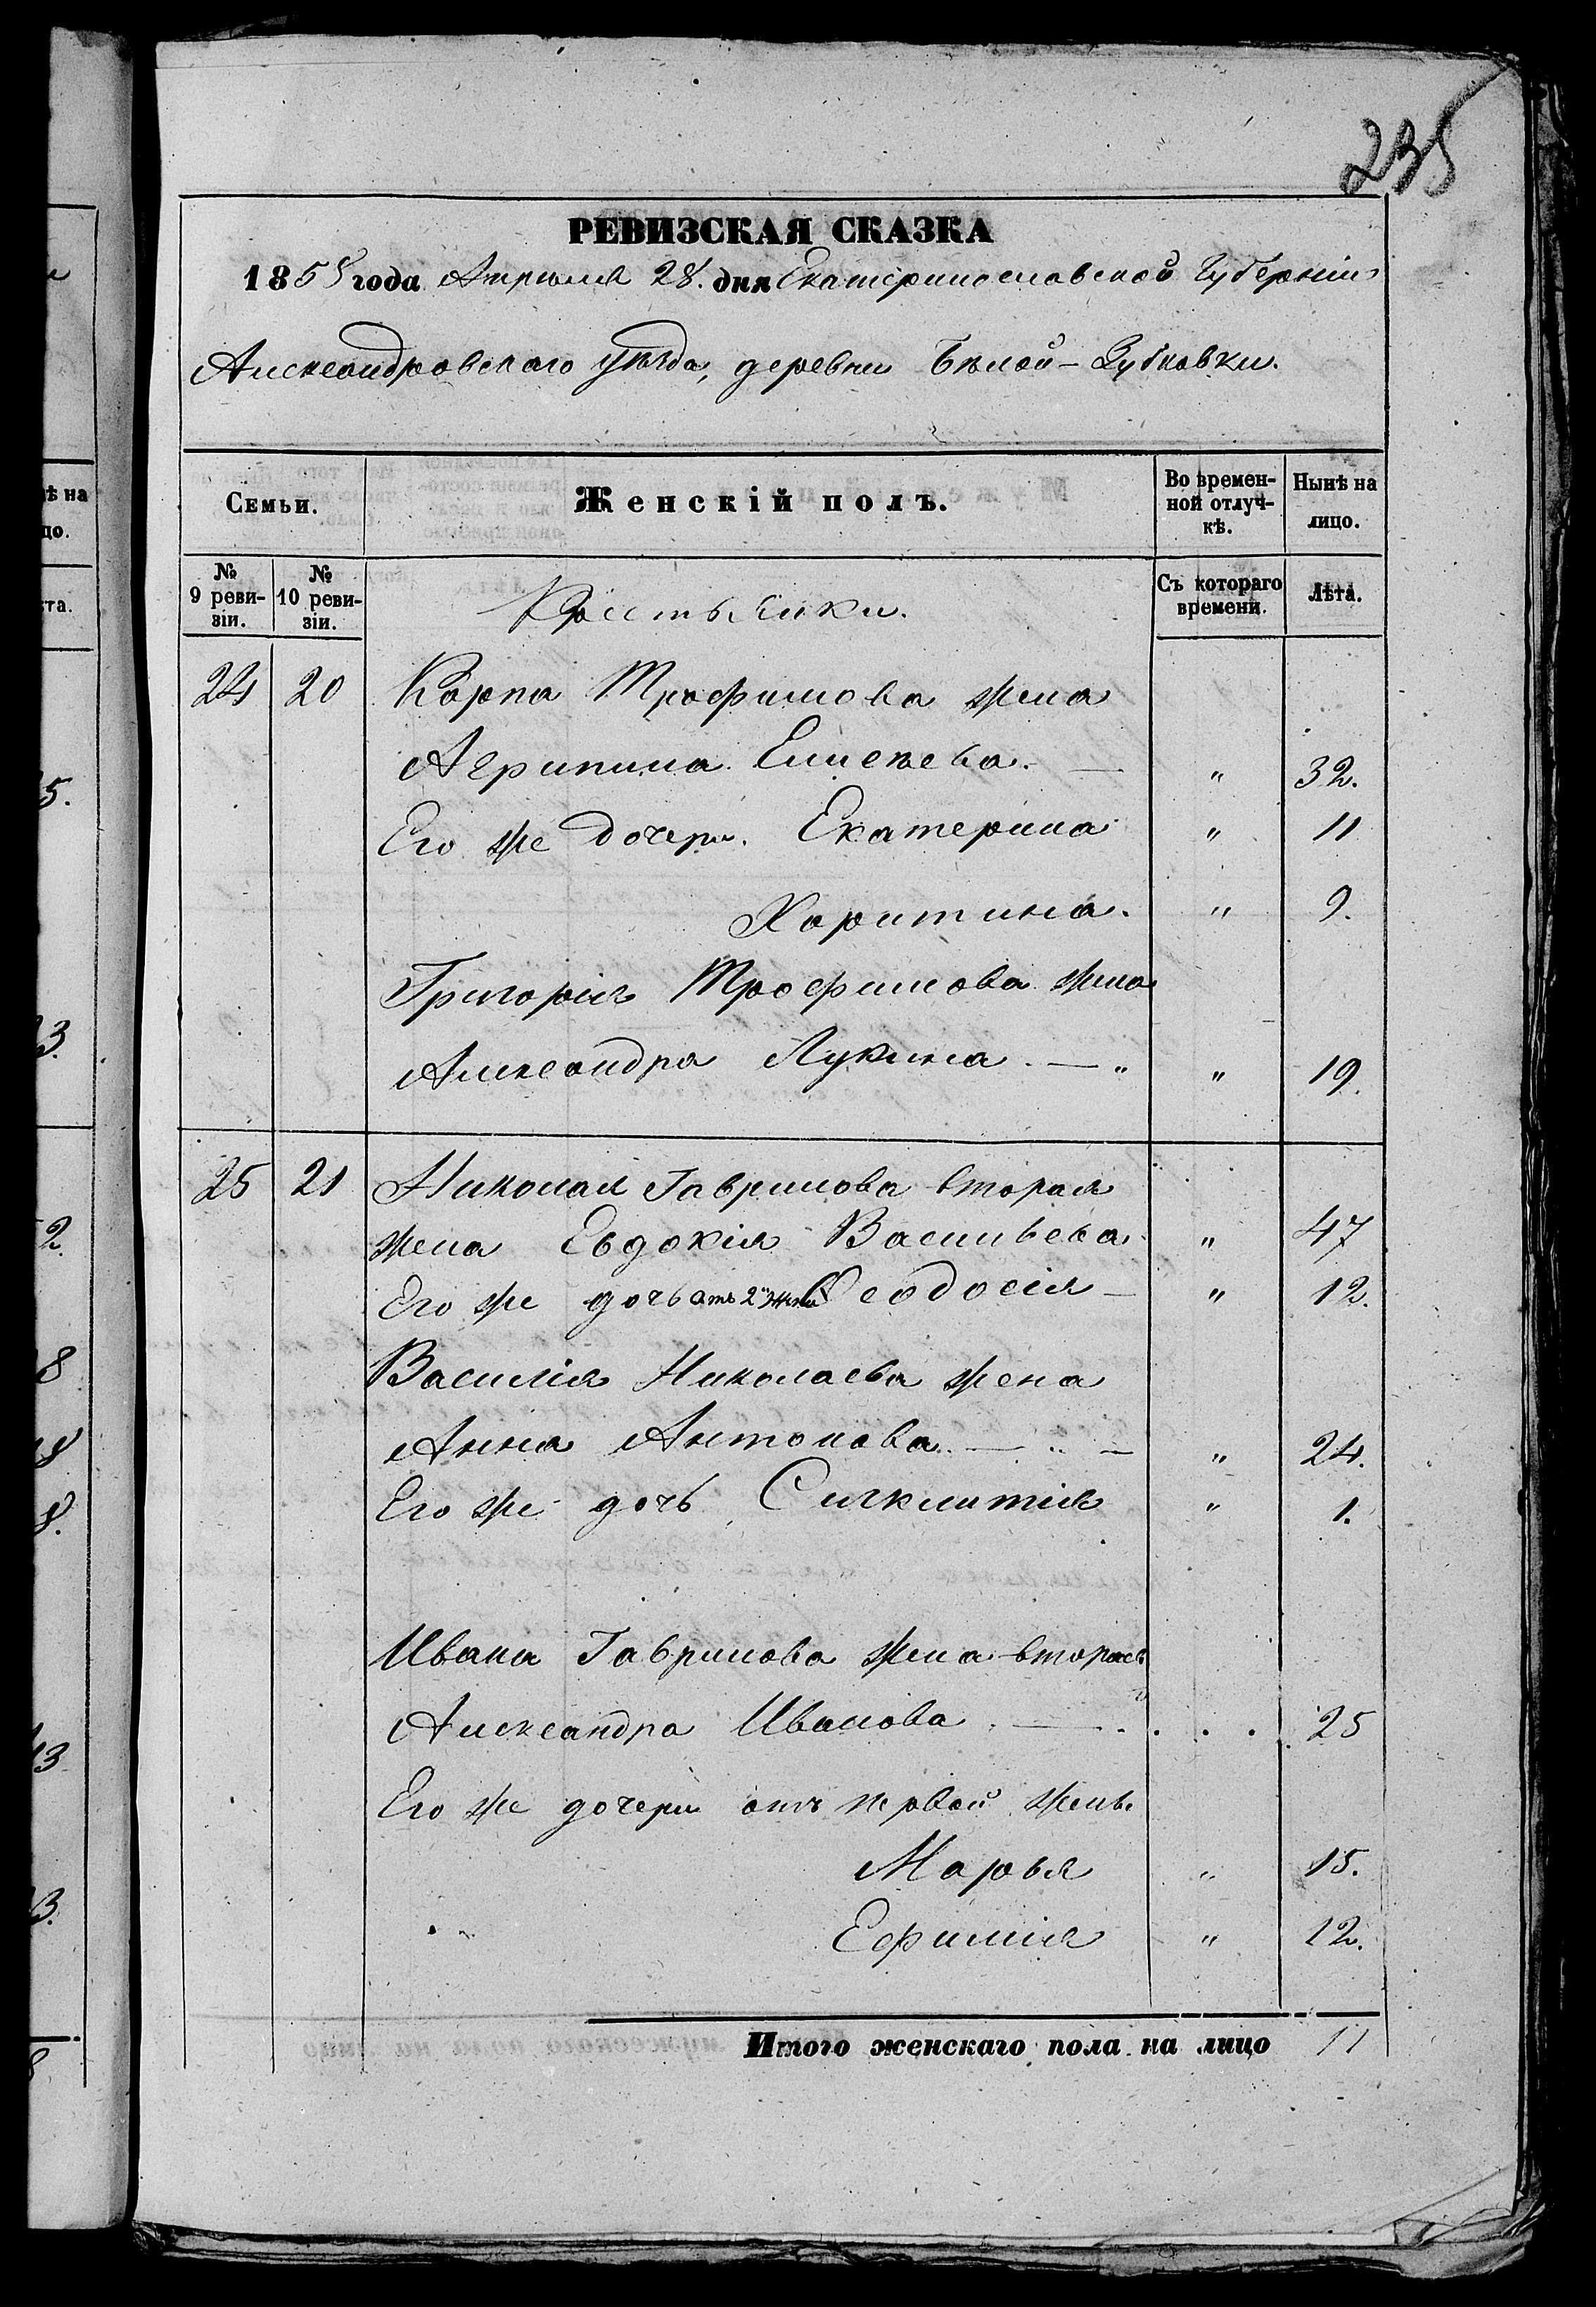 235
РЕВИЗСКАЯ СКАЗКА
1858 года Апрѣля 28. дня Екатеринославской Губерніи
Александровскаго уѣзда, деревни Бѣлой-Зубковки.
Семьи.
Женскій полъ.
Во времен-
ной отлуч-
кѣ.
Нынѣ на
лицо.
№
9 реви-
зіи.
№
10 реви-
зіи.
Крестьянки.
Съ котораго
времени.
Лѣта.
24 20 Карпа Трофимова жена
Агрипина Елисѣева. — " 32.
Его же дочери. Екатерина " 11
Харитина. " 9.
Григорія Трофимова жена
Александра Лукина. — " " 19.
25 21 Николая Гаврилова вторая
жена Евдокія Васильева. " 47
Его же дочь отъ 2й жены Ѳеодосія — " 12.
Василія Николаева жена
Анна Антонова. — " — " 24.
Его же дочь Сигклитія " 1.
Ивана Гаврилова жена вторая
Александра Иванова. — . . . . 25
Его же дочери отъ первой жены
Марья " 15.
Ефимія " 12.
Итого женскаго пола на лицо 11
ѣ на
цо.
та.
5.
3.
2.
8
8
8.
13
3.
8